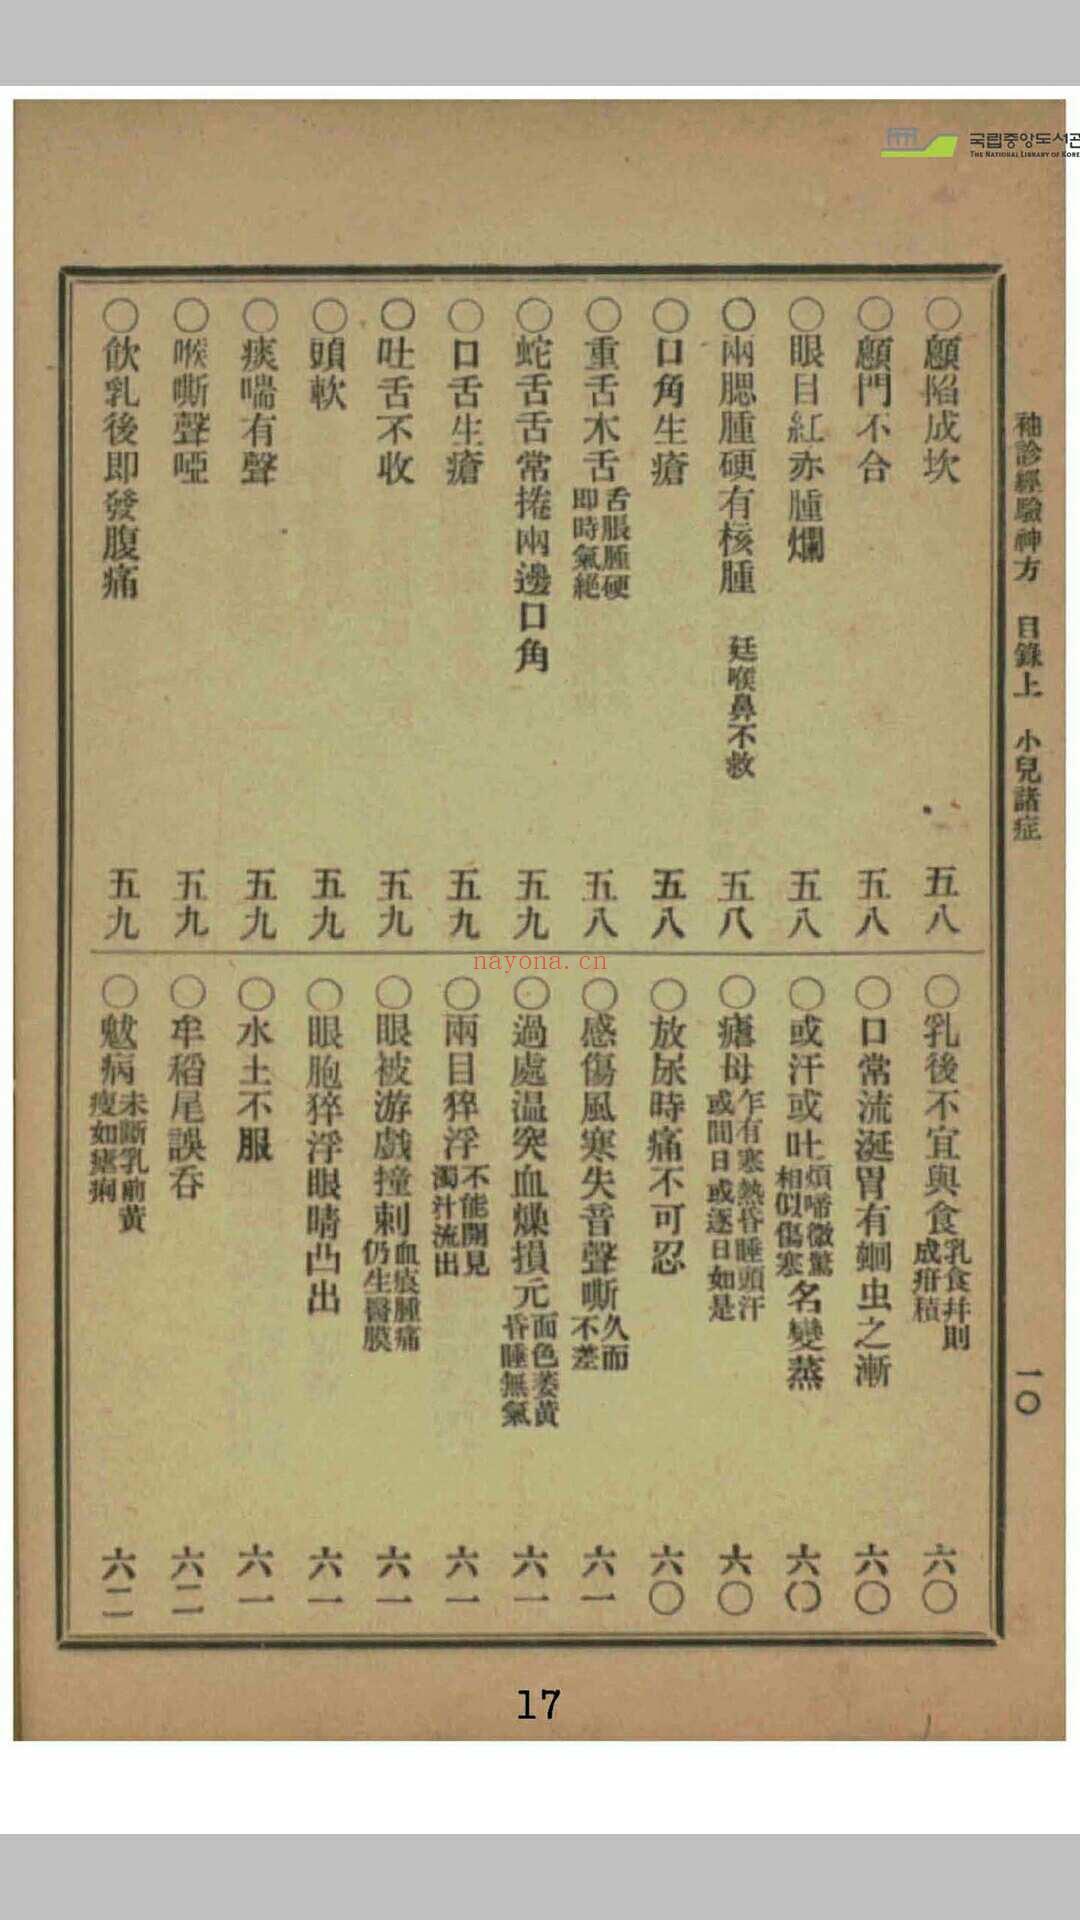 국립중앙도서관
THE NATIONAL LIBRARY OF KORE
袖診經驗神方 目錄上 小兒諸症 一〇
〇顖陷成坎 五八
〇顖門不合 五八
〇眼目紅赤腫爛 五八
〇兩腮腫硬有核腫 廷喉鼻不救 五八
〇口角生瘡 五八
〇重舌木舌 舌脹腫硬即時氣絕 五八
〇蛇舌舌常捲兩邊口角 五九
〇口舌生瘡 五九
〇吐舌不收 五九
〇頭軟 五九
〇痰喘有聲 五九
〇喉嘶聲啞 五九
〇飲乳後即發腹痛 五九
nayona.cn
〇乳後不宜與食 乳食幷則成疳積 六〇
〇口常流涎胃有蛔虫之漸 六〇
〇或汗或吐 煩啼微驚相似傷寒 名變蒸 六〇
〇瘧母 乍有寒熱昏睡頭汗或間日或逐日如是 六〇
〇放尿時痛不可忍 六〇
〇感傷風寒失音聲嘶 久而不差 六一
〇過處温突血燥損元 面色萎黃昏睡無氣 六一
〇兩目猝浮 不能開見濁汁流出 六一
〇眼被游戲撞刺 血痕腫痛仍生醫膜 六一
〇眼胞猝浮眼睛凸出 六一
〇水土不服 六一
〇牟稻尾誤吞 六二
〇魃病 未斷乳前黃瘦如瘧痢 六二
17